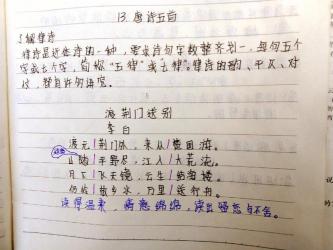 13. 唐诗五首
律诗
律诗是近体诗的一种，要求诗句字数整齐划一，每句五个
字或七个字，简称"五律"或七律"。律诗的韵、平仄、对
仗，都有许多讲究。
渡荆门送别
李白
渡远|荆门外，来从|楚国游。
山随|平野尽，江入|大荒流。
月下|飞天镜，云生|结海楼。
仍怜|故乡水，万里|送行舟。
读得温柔，情意绵绵，读出留恋与不舍。